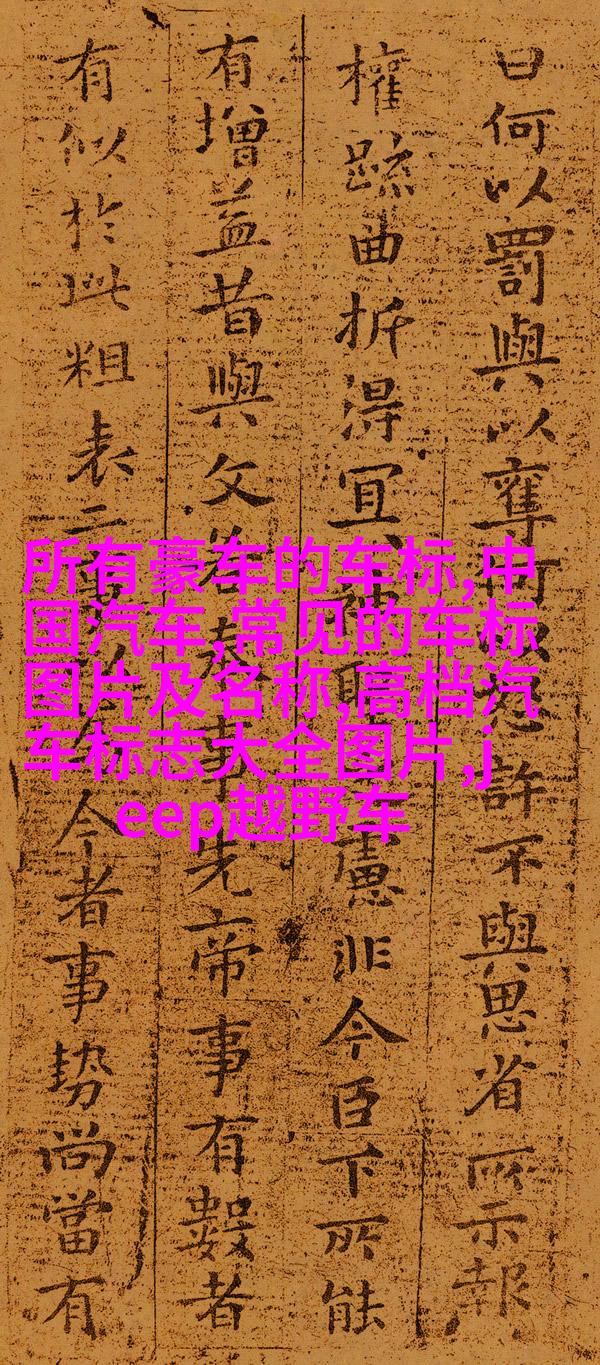 曰何以罰與以奪許不與思省所示報
權疏曲折得冝慮非今臣下所能
有增益昔與文事先帝事有數者
有似於此粗表二今者事勢尚當有
所有豪车的车标,中
国汽车,常见的车标
图片及名称,高档汽
车标志大全图片,j
eep越野车